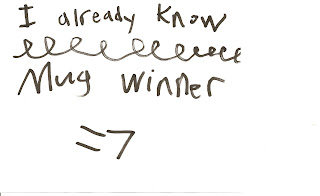 I already know
Mug Winner
=7